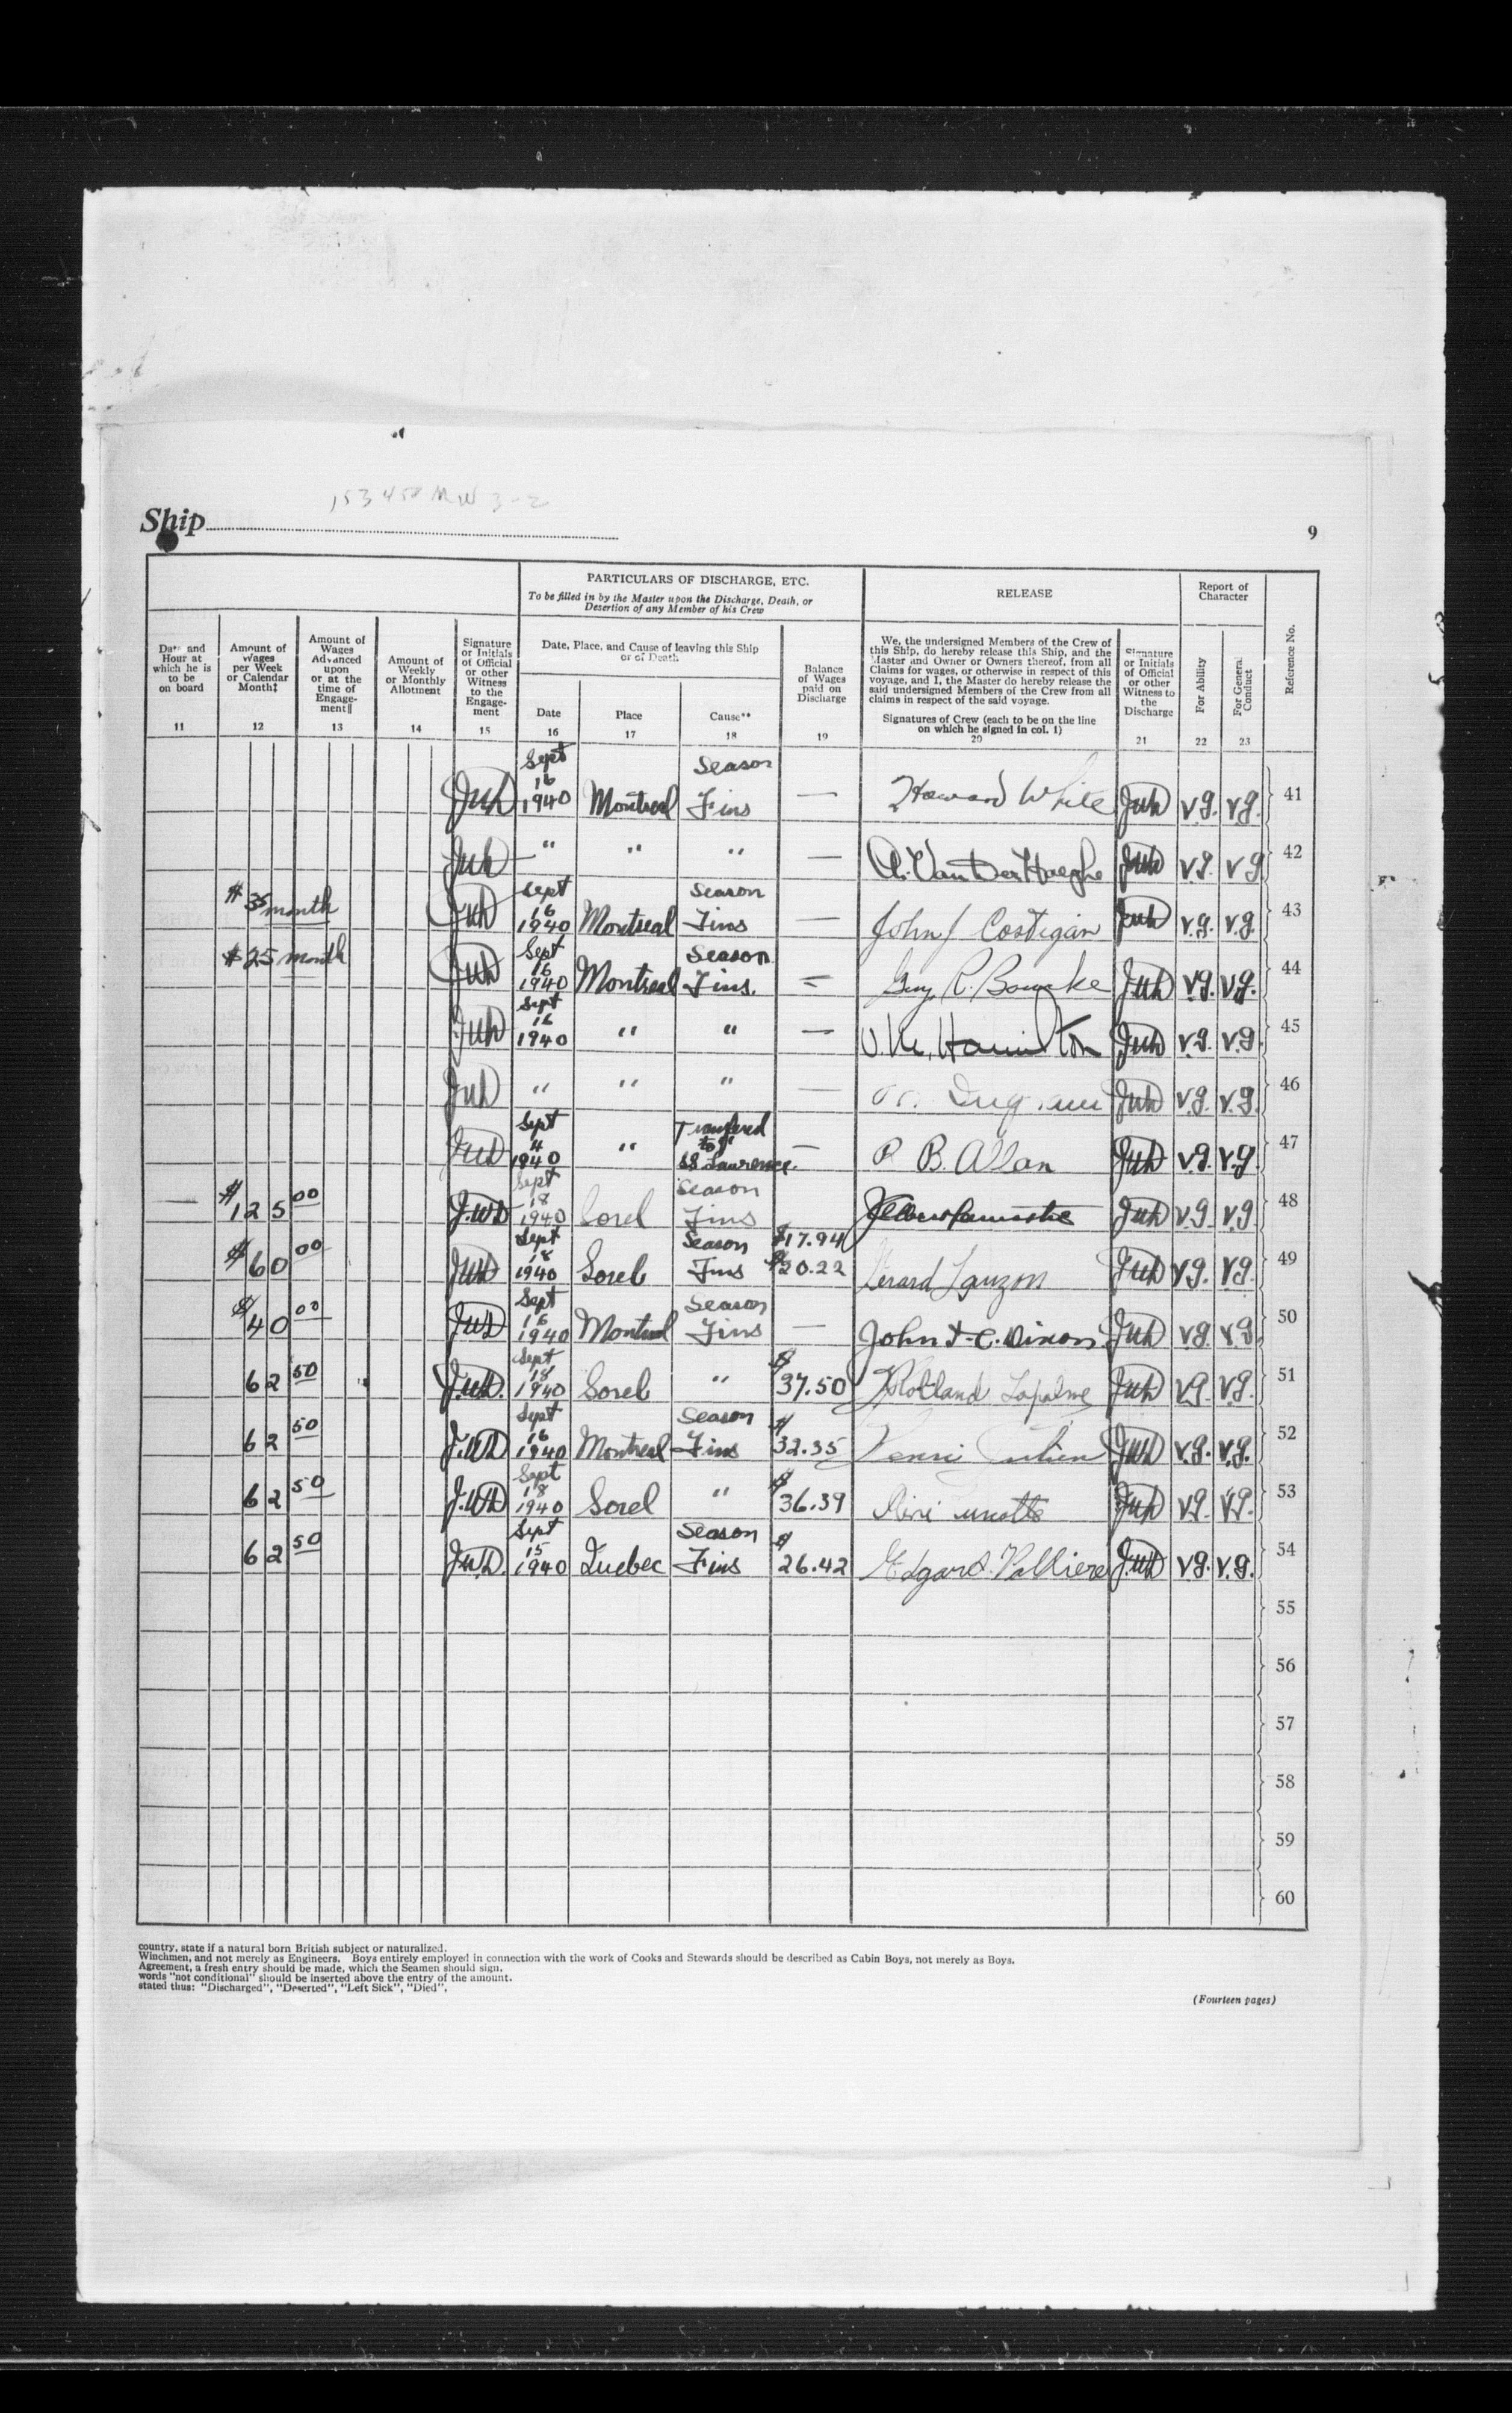 153458 MW 3-2
Ship
9
PARTICULARS OF DISCHARGE, ETC.
To be filled in by the Master upon the Discharge, Death, or
Desertion of any Member of his Crew
RELEASE
Report of
Character
Reference No.
Date and
Hour at
which he is
to be
on board
11
Amount of
Wages
per Week
or Calendar
Month‡
12
Amount of
Wages
Advanced
upon
or at the
time of
Engage-
ment||
13
Amount of
Weekly
or Monthly
Allotment
14
Signature
or Initials
of Official
or other
Witness
to the
Engage-
ment
15
Date, Place, and Cause of leaving this Ship
or of Death
Date
16
Place
17
Cause**
18
Balance
of Wages
paid on
Discharge
19
We, the undersigned Members of the Crew of
this Ship, do hereby release this Ship, and the
Master and Owner or Owners thereof, from all
Claims for wages, or otherwise in respect of this
voyage, and I, the Master do hereby release the
said undersigned Members of the Crew from all
claims in respect of the said voyage.
Signatures of Crew (each to be on the line
on which he signed in col. 1)
20
Signature
or Initials
of Official
or other
Witness to
the
Discharge
21
For Ability
22
For General
Conduct
23
Sept 16 1940 Montreal Season Fins — Howard White v.g. v.g. 41
" " " — A. VanDerHaeghe v.g. v g 42
$ 35 month Sept 16 1940 Montreal Season Fins — John J Costigan v.g. v.g. 43
$ 25 month Sept 16 1940 Montreal Season Fins. = Guy R. Bourke v.g. v.g. 44
Sept 16 1940 " " — Hamilton v.g. v.g 45
" " " — v.g. v.g. 46
Sept 4 1940 " Transfered to SS Lawrence. — R B. Allan v.g. v.g 47
— $125 00 J.WD Sept 18 1940 Sorel Season Fins $17.94 v.g v.g 48
$60 00 Sept 18 1940 Sorel Season Fins $20.22 Gerard Lauzon v.g. v.g. 49
$40 00 Sept 16 1940 Montreal Season Fins — John F. C. Dixon v.g. v.g 50
62 50 Sept 18 1940 Sorel " $37.50 Rolland Lapalme v.g. v.g. 51
62 50 Sept 16 1940 Montreal Season Fins $32.35 Henri v.g. v.g. 52
62 50 Sept 18 1940 Sorel " $36.39 v.g. v.g. 53
62 50 Sept 15 1940 Quebec Season Fins $26.42 Edgard Valliere v.g. v.g. 54
55
56
57
58
59
60
country, state if a natural born British subject or naturalized.
Winchmen, and not merely as Engineers. Boys entirely employed in connection with the work of Cooks and Stewards should be described as Cabin Boys, not merely as Boys.
Agreement, a fresh entry should be made, which the Seamen should sign.
words "not conditional" should be inserted above the entry of the amount.
stated thus: "Discharged", "Deserted", "Left Sick", "Died".
(Fourteen pages)